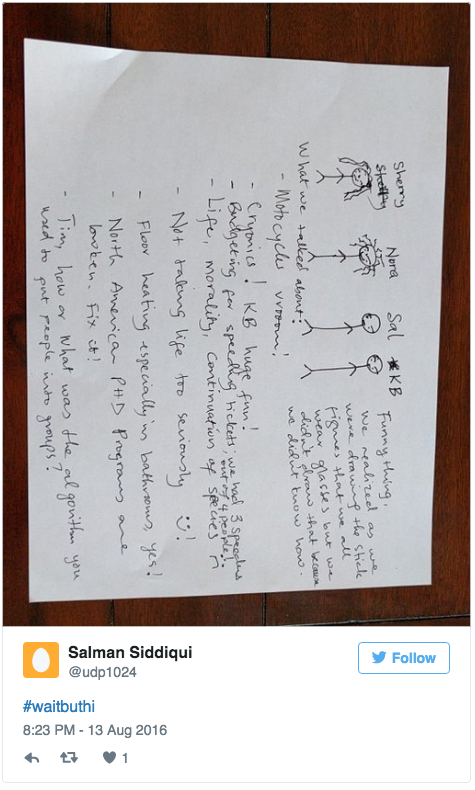 Sherry Nora Sal KB
Funny thing,
we realized as we
were drawing the stick
figures that we all
wear glasses but we
didn't draw that because
we didn't know how.
What we talked about:
- Motocycles vrooom!
- Cryonics! KB huge fun!
- Budgeting for speeding tickets; we had 3 speeders
out of 4 people!
- Life, morality, continuation of species
- Not taking life too seriously !
- Floor heating especially in bathrooms, yes!
- North American PHD Programs are
broken. Fix it!
- Tim, how or what was the algorithm you
used to put people into groups?
Salman Siddiqui
@udp1024
Follow
#waitbuthi
8:23 PM - 13 Aug 2016
1